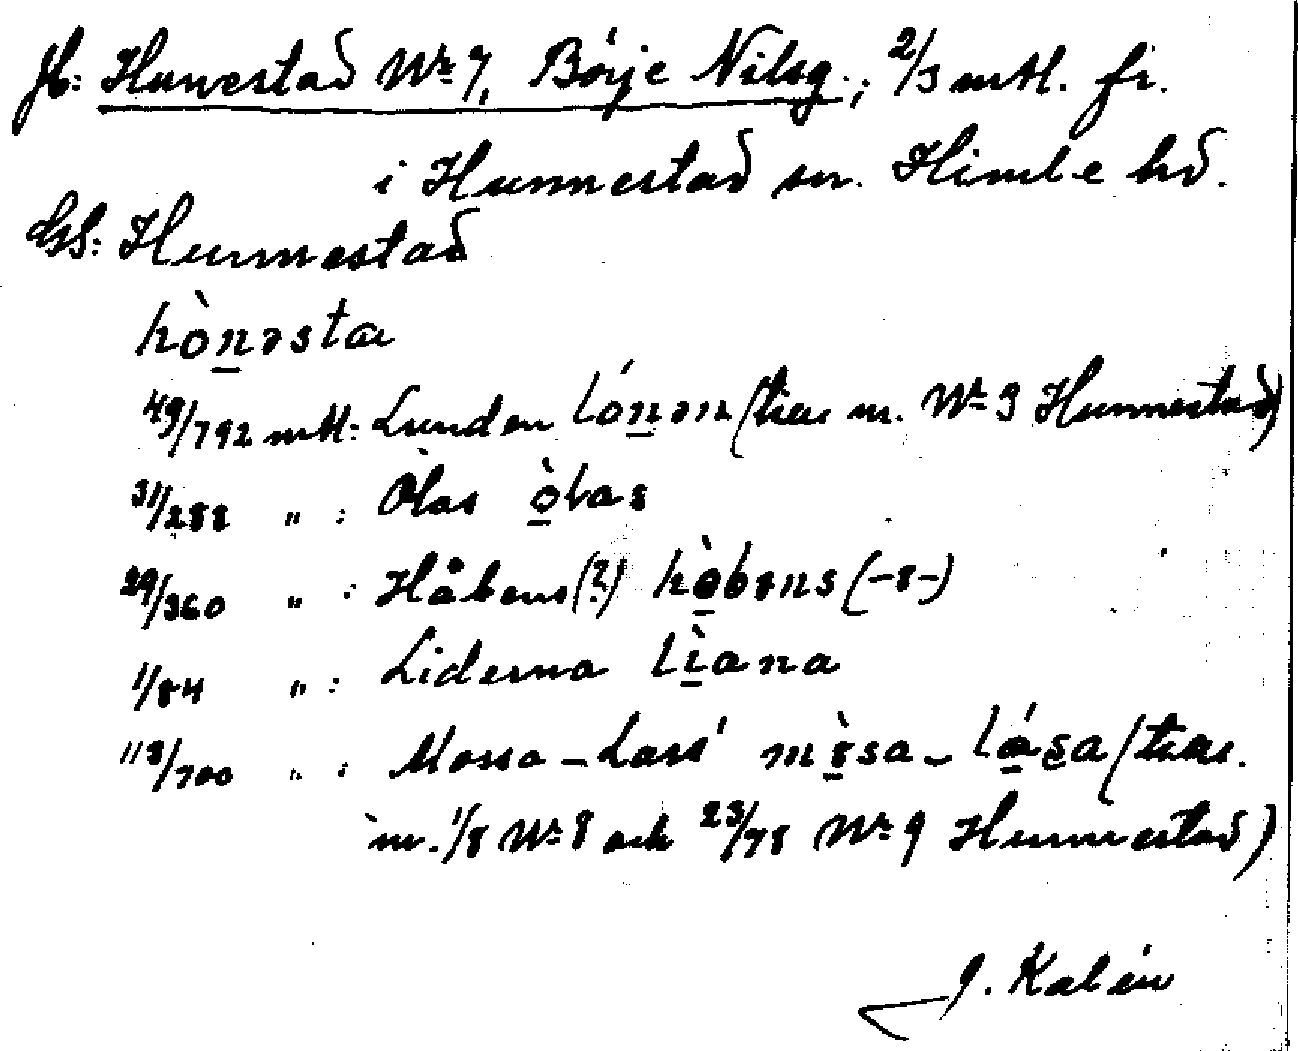 Jb: Hunestad Nr 7, Börje Nilsg.; 2/3 mtl. fr.
i Hunnestad sn. Himle hd.
GS: Hunnestad
hònəsta
49/792 mtl: Lunden lónən (tills m. Nr 3 Hunnestad)
31/288 " : Olas òlas
29/360 " : Håbens (?) hòbəns (-ɛ-)
1/84 " : Liderna lìana
113/700 " : Mossa-Lars' mòsa-lása (tills.
m. 1/8 Nr 8 och 23/78 Nr 9 Hunnestad)
J. Kalén